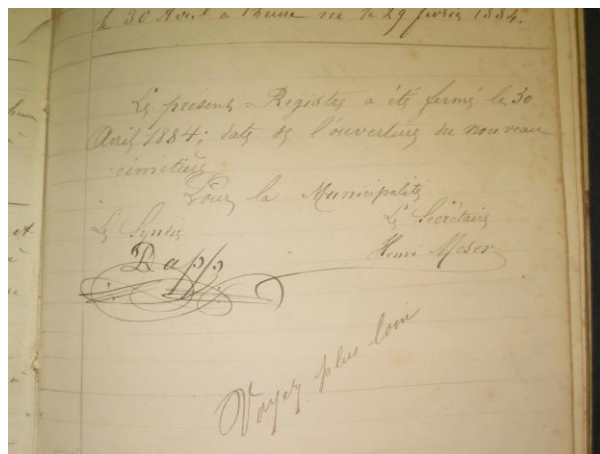 le 30 Avril à 1 heure né le 29 février 1884.
Le présent Registre a été fermé le 30
Avril 1884; date de l'ouverture du nouveau
cimetière
Pour la Municipalité
Le Syndic
Le Secrétaire
Dapp
Henri Meser
Voyez plus loin